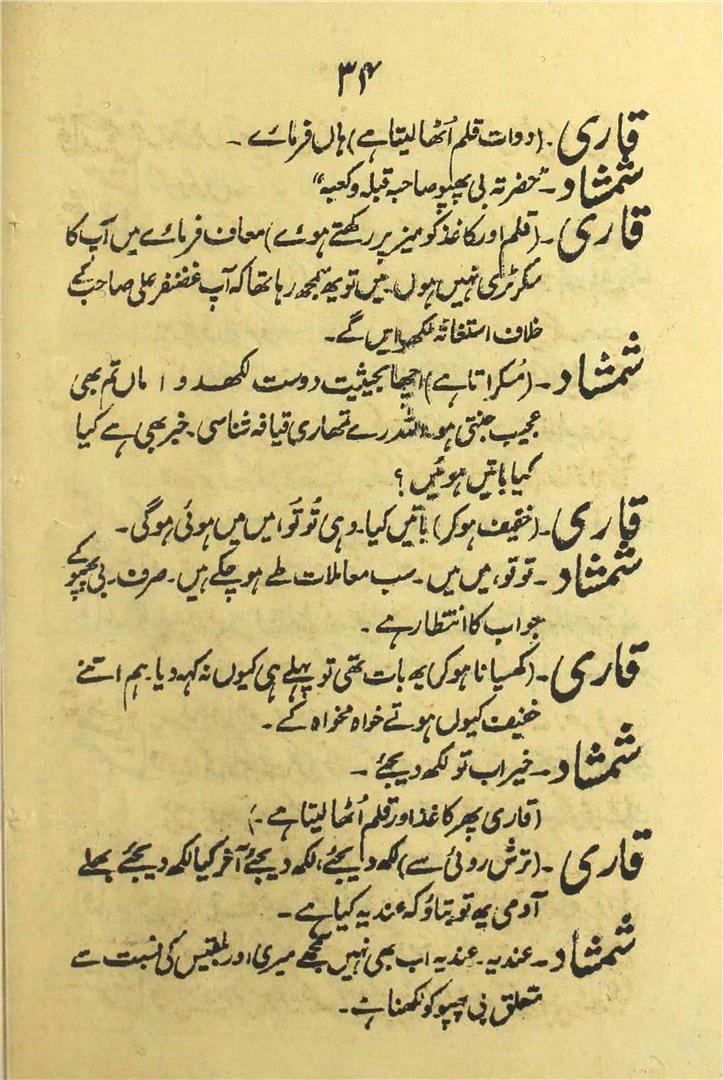 ۳۴
قاری۔ (دوات قلم اُٹھا لیتا ہے) ہاں فرمائے۔
شمشاد۔ "حضرتہ بی پھپو صاحبہ قبلہ و کعبہ"
قاری۔ (قلم اور کاغذ کو میز پر رکھتے ہوئے) معاف فرمائے میں آپ کا
سکرٹری نہیں ہوں۔ میں تو یہ سمجھ رہا تھا کہ آپ غضنفر علی صاحب کے
خلاف استغاثہ لکھوائیں گے۔
شمشاد۔ (مُسکراتا ہے) اچھا بحیثیت دوست لکھدو اماں تم بھی
عجیب جنتی ہو۔ اللہ رے تمھاری قیافہ شناسی۔ خبر بھی ہے کیا
کیا باتیں ہوئیں؟
قاری۔ (خفیف ہو کر) باتیں کیا۔ وہی تُو تُو، میں میں ہوئی ہوگی۔
شمشاد۔ تو تو، میں میں۔ سب معاملات طے ہو چکے ہیں۔ صرف بی پھپو کے
جواب کا انتظار ہے۔
قاری۔ (کھسیانا ہو کر) یہ بات تھی تو پہلے ہی کیوں نہ کہہ دیا۔ ہم اتنے
خفیف کیوں ہوتے خواہ مخواہ کے۔
شمشاد۔ خیر اب تو لکھ دیجئے۔
(قاری پھر کاغذ اور قلم اُٹھا لیتا ہے۔)
قاری۔ (ترش روئی سے) لکھ دیجئے، لکھ دیجئے آخر کیا لکھ دیجئے بھلے
آدمی یہ تو بتاؤ کہ عندیہ کیا ہے۔
شمشاد۔ عندیہ۔ عندیہ اب بھی نہیں سمجھے میری اور بلقیس کی نسبت سے
متعلق بی پھپو کو لکھنا ہے۔